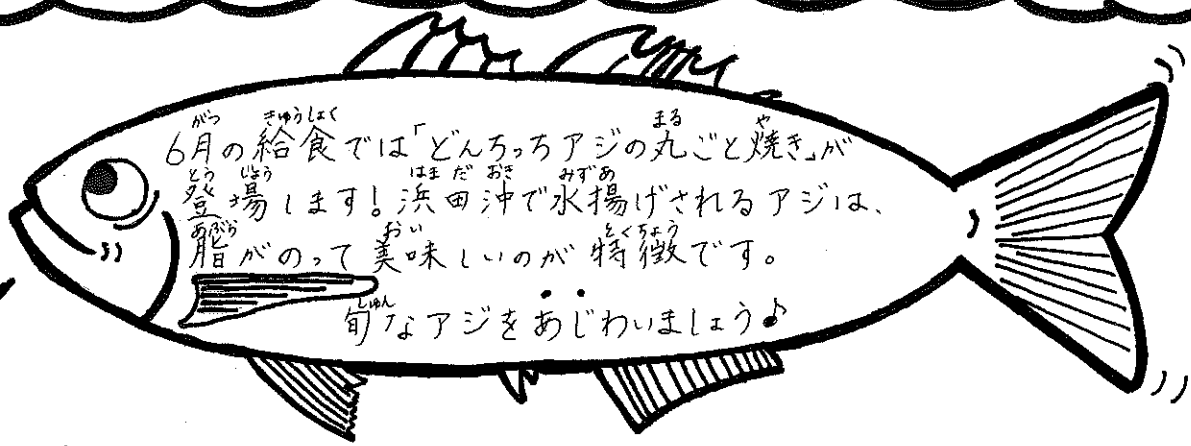 6月の給食では「どんちっちアジの丸ごと焼き」が
登場します!浜田沖で水揚げされるアジは、
脂がのって美味しいのが特徴です。
旬なアジをあじわいましょう♪